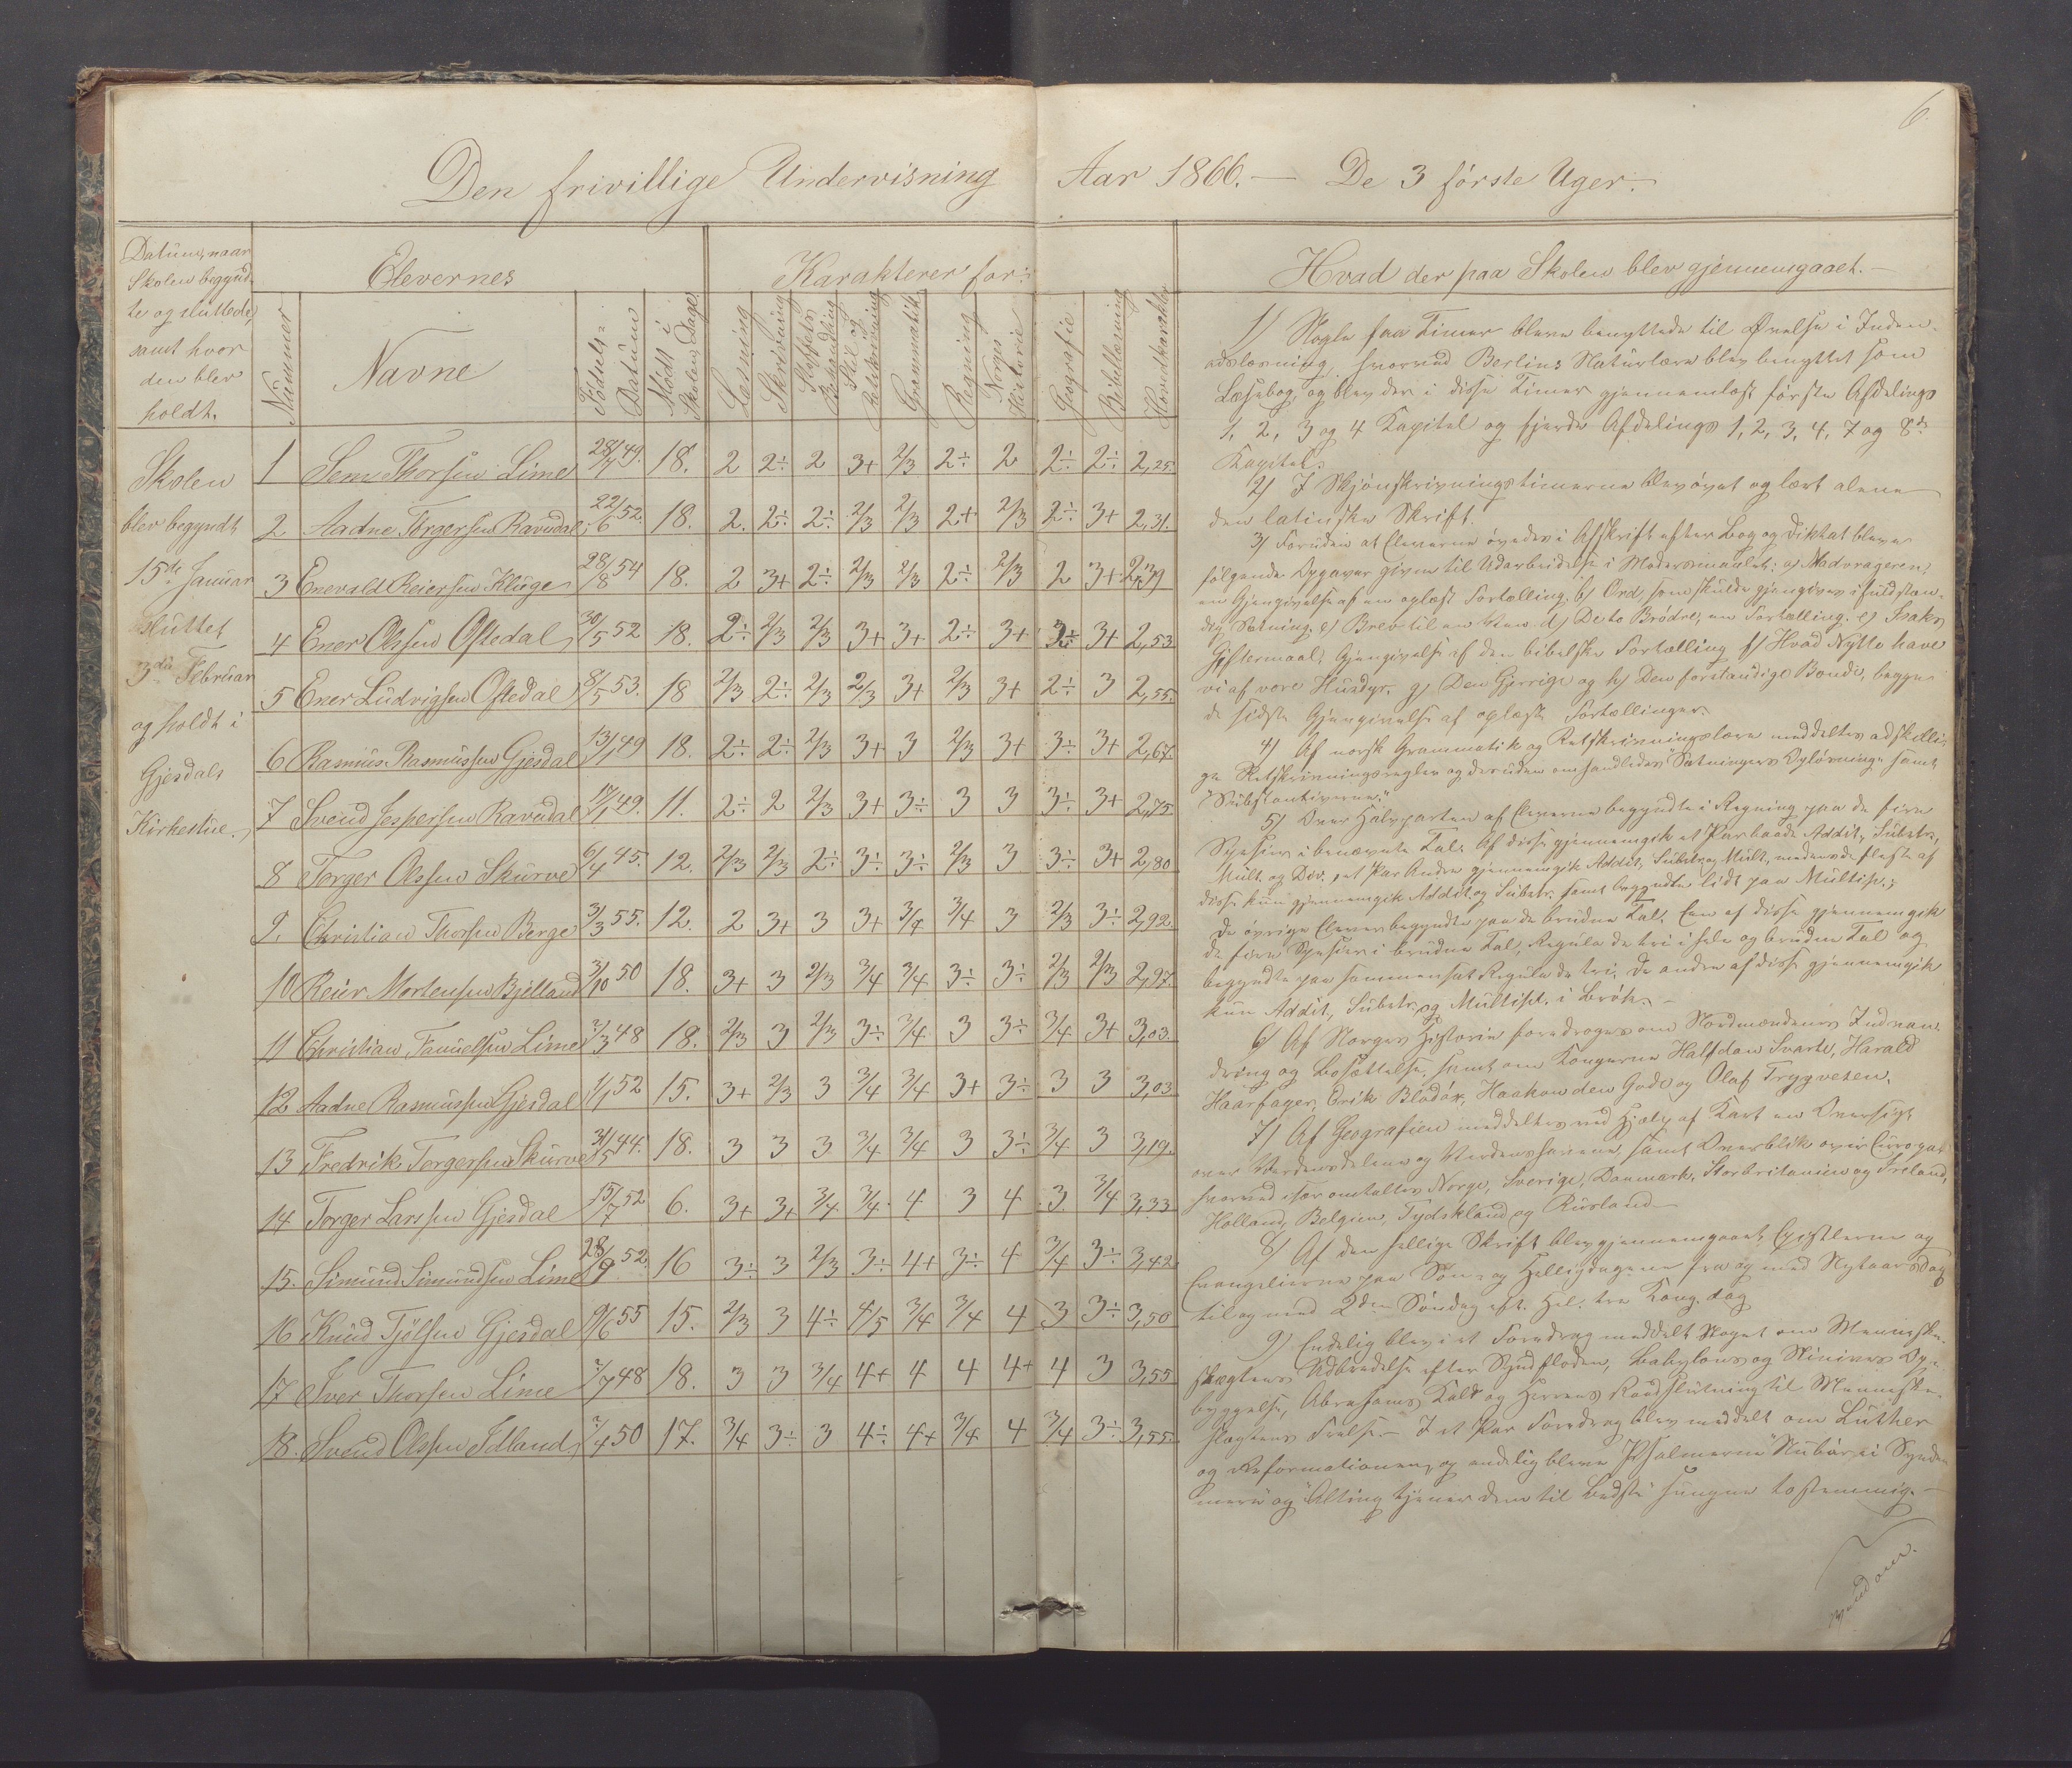 6.
Den frivillige Undervisning Aar 1866. — De 3 förste Uger. —
Datum, naar
Skolen begynd-
te og sluttede,
samt hvor
den blev
holdt.
Elevernes
Karakterer for:
Nummer
Navne
Födsels-
Datum
Mödt i
Skolen Dage
Læsning
Skrivning
Stoffets
Behandling
Stil og
Retskrivning
Grammatik
Regning
Norges
Historie
Geografie
Bibellæsning
Hovedkarakter
Hvad der paa Skolen blev gjennemgaaet. —
Skolen
blev begyndt
15de Januar
sluttet
3die Februar
og holdt i
Gjesdals
Kirkestue.
1 Thorsen Lime 28/7 49. 18. 2 2÷ 2 3+ 2/3 2÷ 2 2÷ 2÷ 2,25.
2 Aadne Torgersen Ravndal 22/6 52. 18. 2. 2÷ 2÷ 2/3 2/3 2+ 2/3 2÷ 3+ 2,31.
3 Enevald Reiersen Kluge 28/8 54 18. 2 3+ 2÷ 2/3 2/3 2÷ 2/3 2 3+ 2,39
4 Ener Olssen Oftedal 30/5 52 18. 2÷ 2/3 2/3 3+ 3+ 2÷ 3+ 2÷ 3+ 2,53
5 Ener Ludvigsen Oftedal 8/5 53. 18 2/3 2÷ 2/3 2/3 3+ 2/3 3+ 2÷ 3 2,55.
6 Rasmus Rasmussen Gjesdal 13/1 49 18. 2÷ 2÷ 2/3 3+ 3 2/3 3+ 3÷ 3+ 2,67.
7 Svend Jespersen Ravndal 17/1 49. 11. 2÷ 2 2/3 3+ 3÷ 3 3 3÷ 3+ 2,75.
8 Torger Olssen Skurve 6/4 45. 12. 2/3 2/3 2÷ 3÷ 3÷ 2/3 3 3÷ 3+ 2,80
9. Christian Thorsen Berge 3/3 55. 12. 2 3+ 3 3+ 3/4 3/4 3 2/3 3÷ 2,92.
10 Reier Mortensen Bjelland 3/10 50 18. 3+ 3 2/3 3/4 3/4 3÷ 3÷ 2/3 2/3 2,97.
11 Christian Samuelsen Lime 2/3 48 18. 2/3 3 2/3 3÷ 3/4 3 3÷ 3/4 3+ 3,03.
12 Aadne Rasmussen Gjesdal 1/1 52 15. 3+ 2/3 3 3/4 3/4 3+ 3÷ 3 3 3,03
13 Fredrik Torgersen Skurve 31/5 44. 18. 3 3 3 3/4 3/4 3 3÷ 3/4 3 3,19.
14 Torger Larssen Gjesdal 15/7 52 6. 3+ 3+ 3/4 3/4. 4 3 4 3 3/4 3,33
15. Simund Simundsen Lime 28/9 52. 16 3÷ 3 2/3 3÷ 4+ 3÷ 4 3/4 3÷ 3,42.
16 Knud Tjölsen Gjesdal 9/6 55 15. 2/3 3 4÷ 4/5 3/4 3/4 4 3 3÷ 3,50
17 Iver Thorsen Lime 2/7 48 18. 3 3 3/4 4+ 4 4 4+ 4 3 3,55
18. Svend Olssen Idland 2/4 50 17. 3/4 3÷ 3 4÷ 4+ 3/4 4 3/4 3÷ 3,55.
1) Nogle faa Timer bleve benyttede til Övelse i Inden-
adslæsning, hvorved Berlins Naturlære blev benyttet som
Læsebog, og blev der i disse Timer gjennemlæst förste Afdelings
1, 2, 3 og 4 Kapitel og fjerde Afdelings 1, 2, 3, 4, 7 og 8de
Kapitel.
2) I Skjönskrivningstimerne blev övet og lært alene
den latinske Skrift.
3) Foruden at Eleverne övedes i Afskrift efter Bog og Diktat bleve
fölgende Opgaver given til Udarbeidelse i Modersmaalet: a)
en Gjengivelse af en oplæst Fortælling. b) Ord, som skulde gjengives i fuldstæn-
dig Sætning. c) Brev til en Ven d) De to Brödre, en Fortælling. e) Isaks
Giftermaal, Gjengivelse af den bibelske Fortælling f) Hvad Nytte have
vi af vore Husdyr. g) Den Gjerrige og h) Den forstandige Bonde, begge
de sidste Gjengivelse af oplæste Fortællinger.
4) Af norsk Grammatik og Retskrivningslære meddeltes adskilli-
ge Retskrivningsregler og desuden omhandledes "Sætningers Oplösning" samt
"Substantiverne."
5) Over Halvparten af Eleverne begyndte i Regning paa de fire
Spesier i benævnte Tal. Af disse gjennemgik et Par baade Addit., Subtr.,
Mult. og Div., et Par Andre gjennemgik Addit., Subtr. og Mult., medens de fleste af
disse kun gjennemgik Addit. og Subtr. samt begyndte lidt paa Multipl.;
De övrige Elever begyndte paa de brudne Tal. Een af disse gjennemgik
de fire Spesier i brudne Tal, Regula de tri i hele og brudne Tal og
begyndte paa sammensat Regula de tri. De andre af disse gjennemgik
kun Addit., Subtr. og Multipl. i Brök. —
6) Af Norges Historie foredroges om Nordmændenes Indvan-
dring og Bosættelse, samt om Kongerne Halfdan Svarte, Harald
Haarfager, Erik Blodöx, Haakon den Gode og Olaf Trygvesen.
7) Af Geografien meddeltes ved Hjelp af Kart en Oversigt
over Verdensdelene og Verdenshavene, samt Overblik over Europa,
hvorved især omtaltes Norge, Sverige, Danmark, Storbritanien og Ireland,
Holland, Belgien, Tydskland og Rusland —
8) Af den hellige Skrift blev gjennemgaaet Epistlerne og
Evangelierne paa Søn- og Helligdagene fra og med Nytaarsdag
til og med 2den Söndag eft. Hel. tre Kong. dag
9) Endelig blev i et Foredrag meddelt Noget om Menneske-
slægtens Udbredelse efter Syndfloden, Babylons og Ninives Op-
byggelse, Abrahams Kald og Herrens Raadslutning til Menneske-
slægtens Frelse. — I et Par Foredrag blev meddelt om Luther
og Reformationen, og endelig bleve Psalmerne
og "Alting tjener dem til Bedste" sungne tostemmig. —